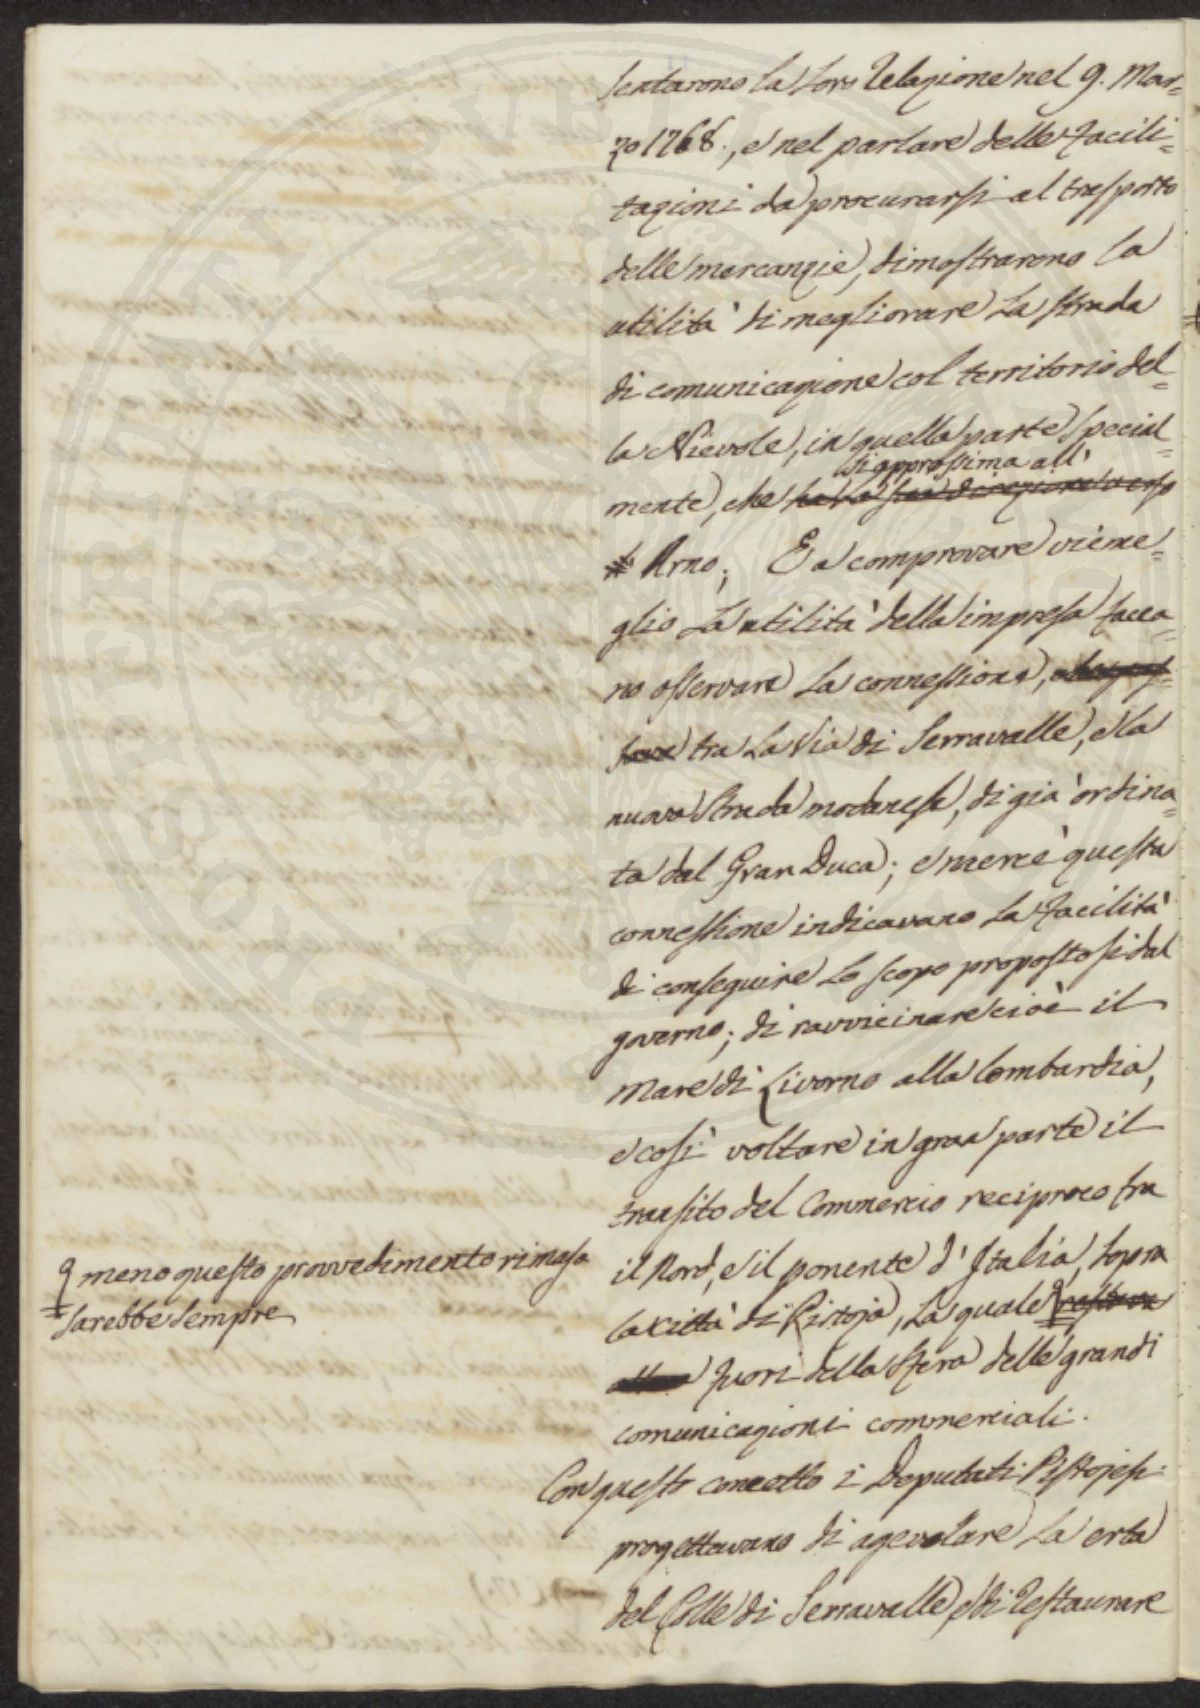 sentarono la loro Relazione nel 9. Mar=
zo 1768., e nel parlare delle facili=
tazioni da procurarsi al trasporto
delle mercanzie, dimostrarono la
utilità di megliorare la strada
di comunicazione col territorio del=
la Nievole, in quella parte special=
si approssima all'
mente, che ha la sua direzione verso
# Arno; E a comprovare vieme=
glio la utilità della impresa facea=
no osservare la connessione,
tra la Via di Serravalle, e la
nuova Strada modanese, di già ordina=
ta dal Gran Duca; e mercè questa
connessione indicavano la facilità
di conseguire lo scopo propostosi dal
governo; di ravvicinare cioè il
Mare di Livorno alla Lombardia,
e così voltare in gran parte il
transito del Commercio reciproco tra
il Nord, e il ponente d'Italia, sopra
la città di Pistoja, la quale restava
fuori della sfera delle grandi
comunicazioni commerciali.
Con questo concetto i Deputati Pistojesi
progettavano di agevolare la erta
del Colle di Serravalle, e di restaurare
q meno questo provvedimento rimasa
= sarebbe sempre
PUBLICI
PERILATI
PROSPERITATI